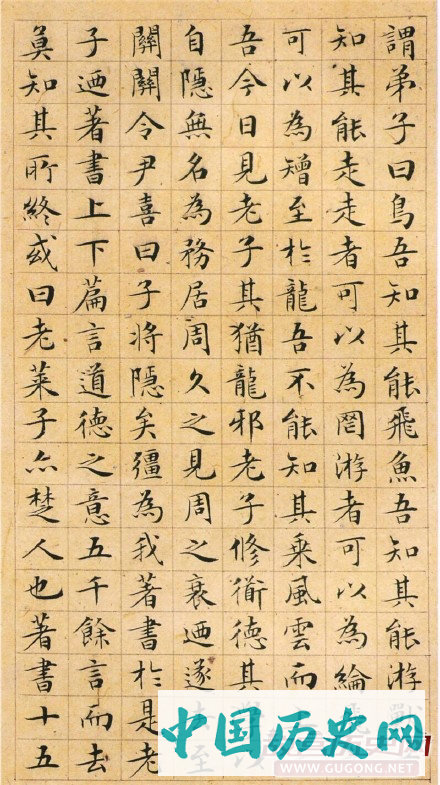 謂弟子曰鳥吾知其能飛魚吾知其能游
知其能走走者可以為罔游者可以為綸
可以為矰至於龍吾不能知其乘風雲而
吾今日見老子其猶龍邪老子修衜德其
自隱無名為務居周久之見周之衰迺遂至
關關令尹喜曰子將隱矣彊為我著書於是老
子迺著書上下篇言道德之意五千餘言而去
莫知其所終或曰老萊子亦楚人也著書十五
中国历史网
WWW.GUGONG.NET